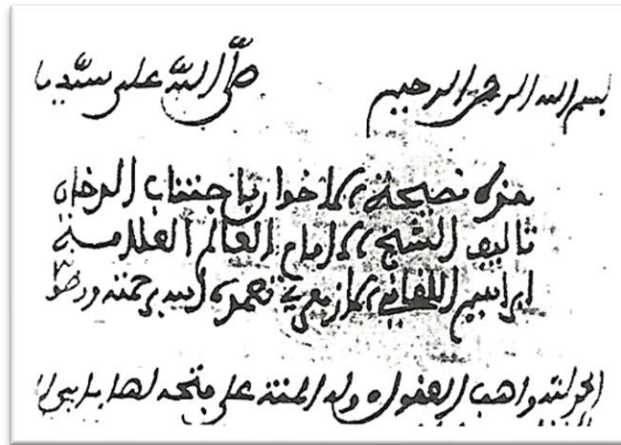 بسم الله الرحمن الرحيم صلى الله على سيدنا
هذه نصيحة الاخوان باجتناب الدخان
تاليف الشيخ الامام العالم العلامة
ابراهيم اللقاني الازهري تغمده الله برحمته ورضو
الحمد لله واهب العقول وله المنة على